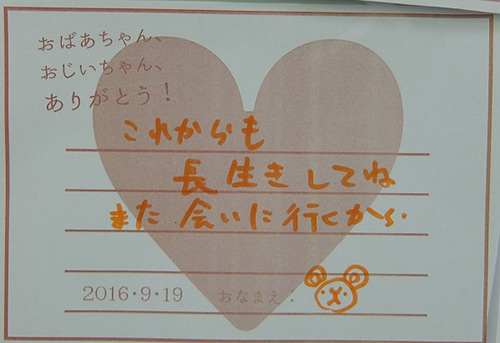 おばあちゃん、
おじいちゃん、
ありがとう！
これからも
長生きしてね
また会いに行くから
2016・9・19 おなまえ：